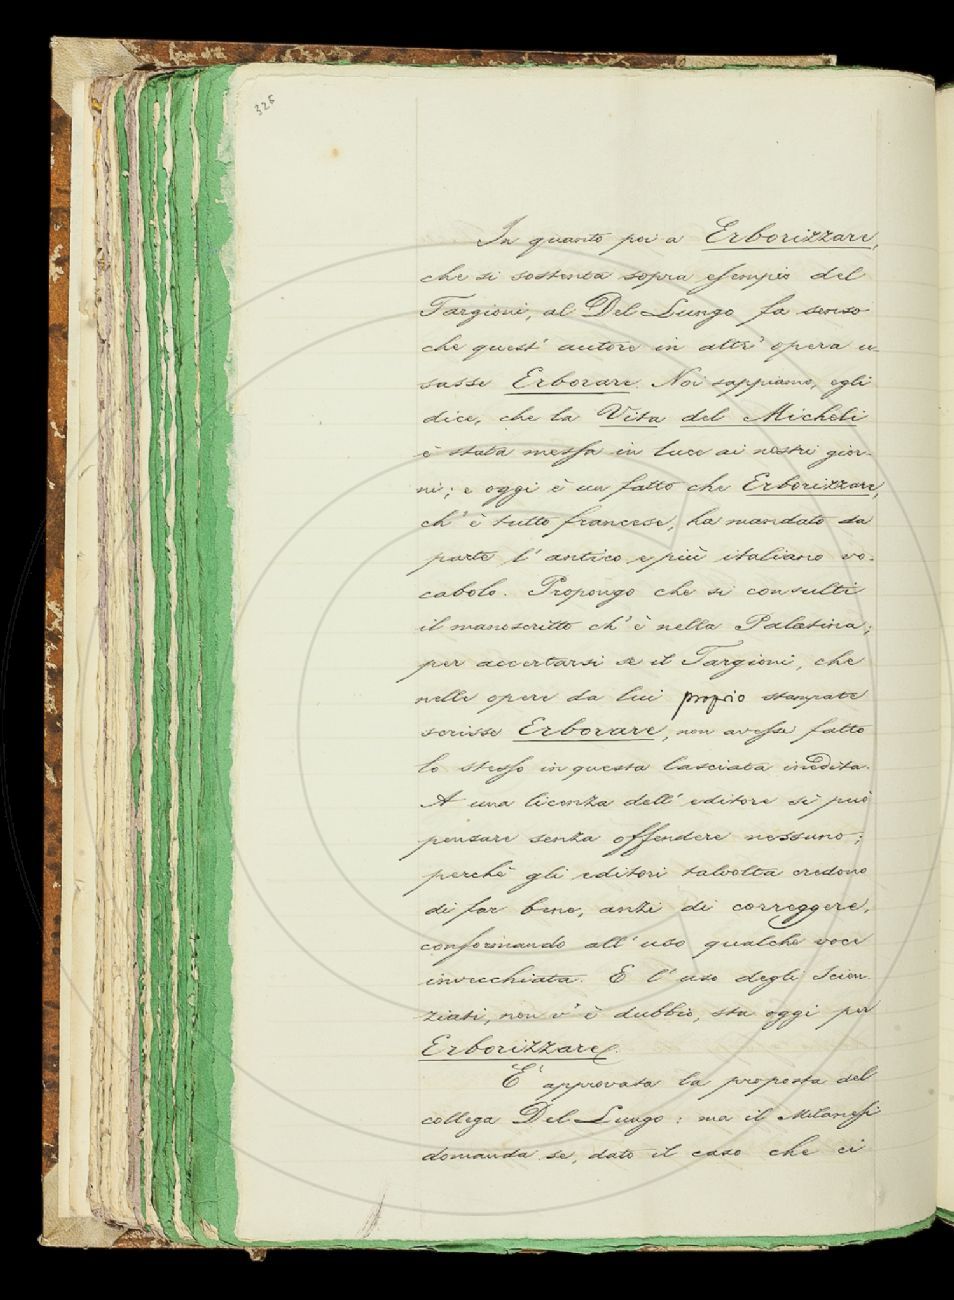 328
In quanto poi a Erborizzare,
che si sostenta sopra esempio del
Targioni, al Del Lungo fa senso
che quest' autore in altr' opera u-
sasse Erborare. Noi sappiamo, egli
dice, che la Vita del Micheli
è stata messa in luce ai nostri gior-
ni; e oggi è un fatto che Erborizzare,
ch' è tutto francese, ha mandato da
parte l' antico e più italiano vo-
cabolo. Propongo che si consulti
il manoscritto ch' è nella Palatina;
per accertarsi se il Targioni, che
nelle opere da lui proprio stampate
scrisse Erborare, non avesse fatto
lo stesso in questa lasciata inedita.
A una licenza dell' editore si può
pensare senza offendere nessuno;
perchè gli editori talvolta credono
di far bene, anzi di correggere,
conformando all' uso qualche voce
invecchiata. E l' uso degli Scien-
ziati, non v' è dubbio, sta oggi per
Erborizzare.
E' approvata la proposta del
collega Del Lungo: ma il Milanesi
domanda se, dato il caso che ci